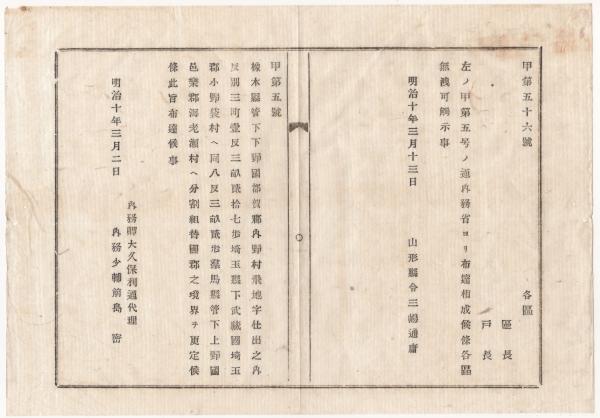 甲第五十六號
各區
區長
戸長
左ノ甲第五号ノ通內務省ヨリ布達相成候條各區
無洩可觸示事
明治十年三月十三日
山形縣令三嶋通庸
甲第五號
橡木縣管下下野國都賀郡內野村飛地字仕出之內
反別三町壹反三畝貳拾七歩埼玉縣下武藏國埼玉
郡小野袋村ヘ同八反三畝貳歩羣馬縣管下上野國
邑樂郡海老瀬村ヘ分割組替國郡之境界ヲ更定候
條此旨布達候事
明治十年三月二日
內務卿大久保利通代理
內務少輔前島 密